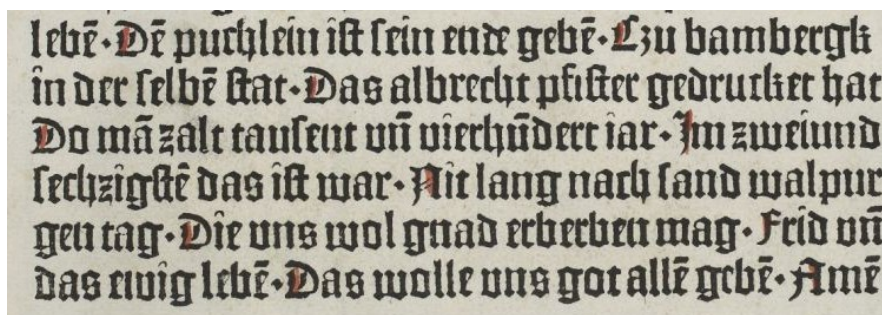 lebē· Dē puchlein ist sein ende gebē· Czu bambergk
in der selbē stat· Das albrecht pfister gedrucket hat
Do mā zalt tausent vñ vierhūdert iar· Im zweiund
sechzigstē das ist war· Nit lang nach sand walpur
gen tag· Die vns wol gnad erberben mag· Frid vñ
das ewig lebē· Das wolle vns got allē gebē· Amē